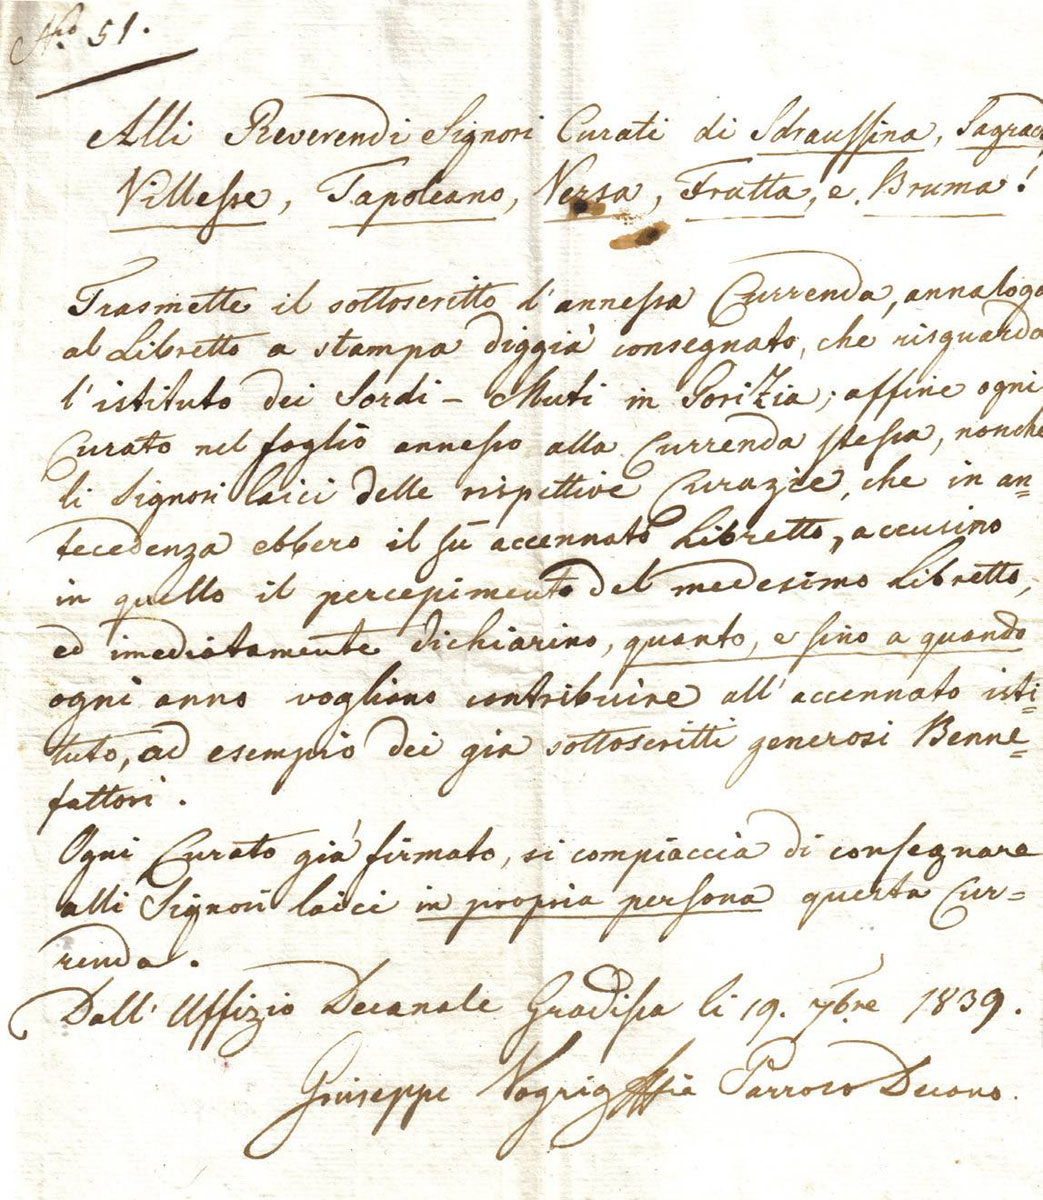 Nro 51.
Alli Reverendi Signori Curati di Sdraussina, Sagrado,
Villesse, Tapoleano, Versa, Fratta, e Bruma!
Trasmette il sottoscritto l'annessa Currenda, annaloga
al Libretto a stampa diggià consegnato, che risguarda
l'istituto dei Sordi-Muti in Gorizia; affine ogni
Curato nel foglio annesso alla Currenda stessa, nonche
li Signori laici delle rispettive Curazie, che in an=
tecedenza ebbero il sù accennato Libretto, accusino
in quello il percepimento del medesimo Libretto,
ed imediatamente dichiarino, quanto, e sino a quando
ogni anno vogliono contribuire all'accennato isti=
tuto, ad esempio dei gia sottoscritti generosi Benne=
fattori.
Ogni Curato già firmato, si compiaccia di consegnare
alli Signori laici in propria persona questa Cur=
renda.
Dall'Uffizio Decanale Gradisca li 19. 7bre 1839.
Giuseppe Parroco Decano.